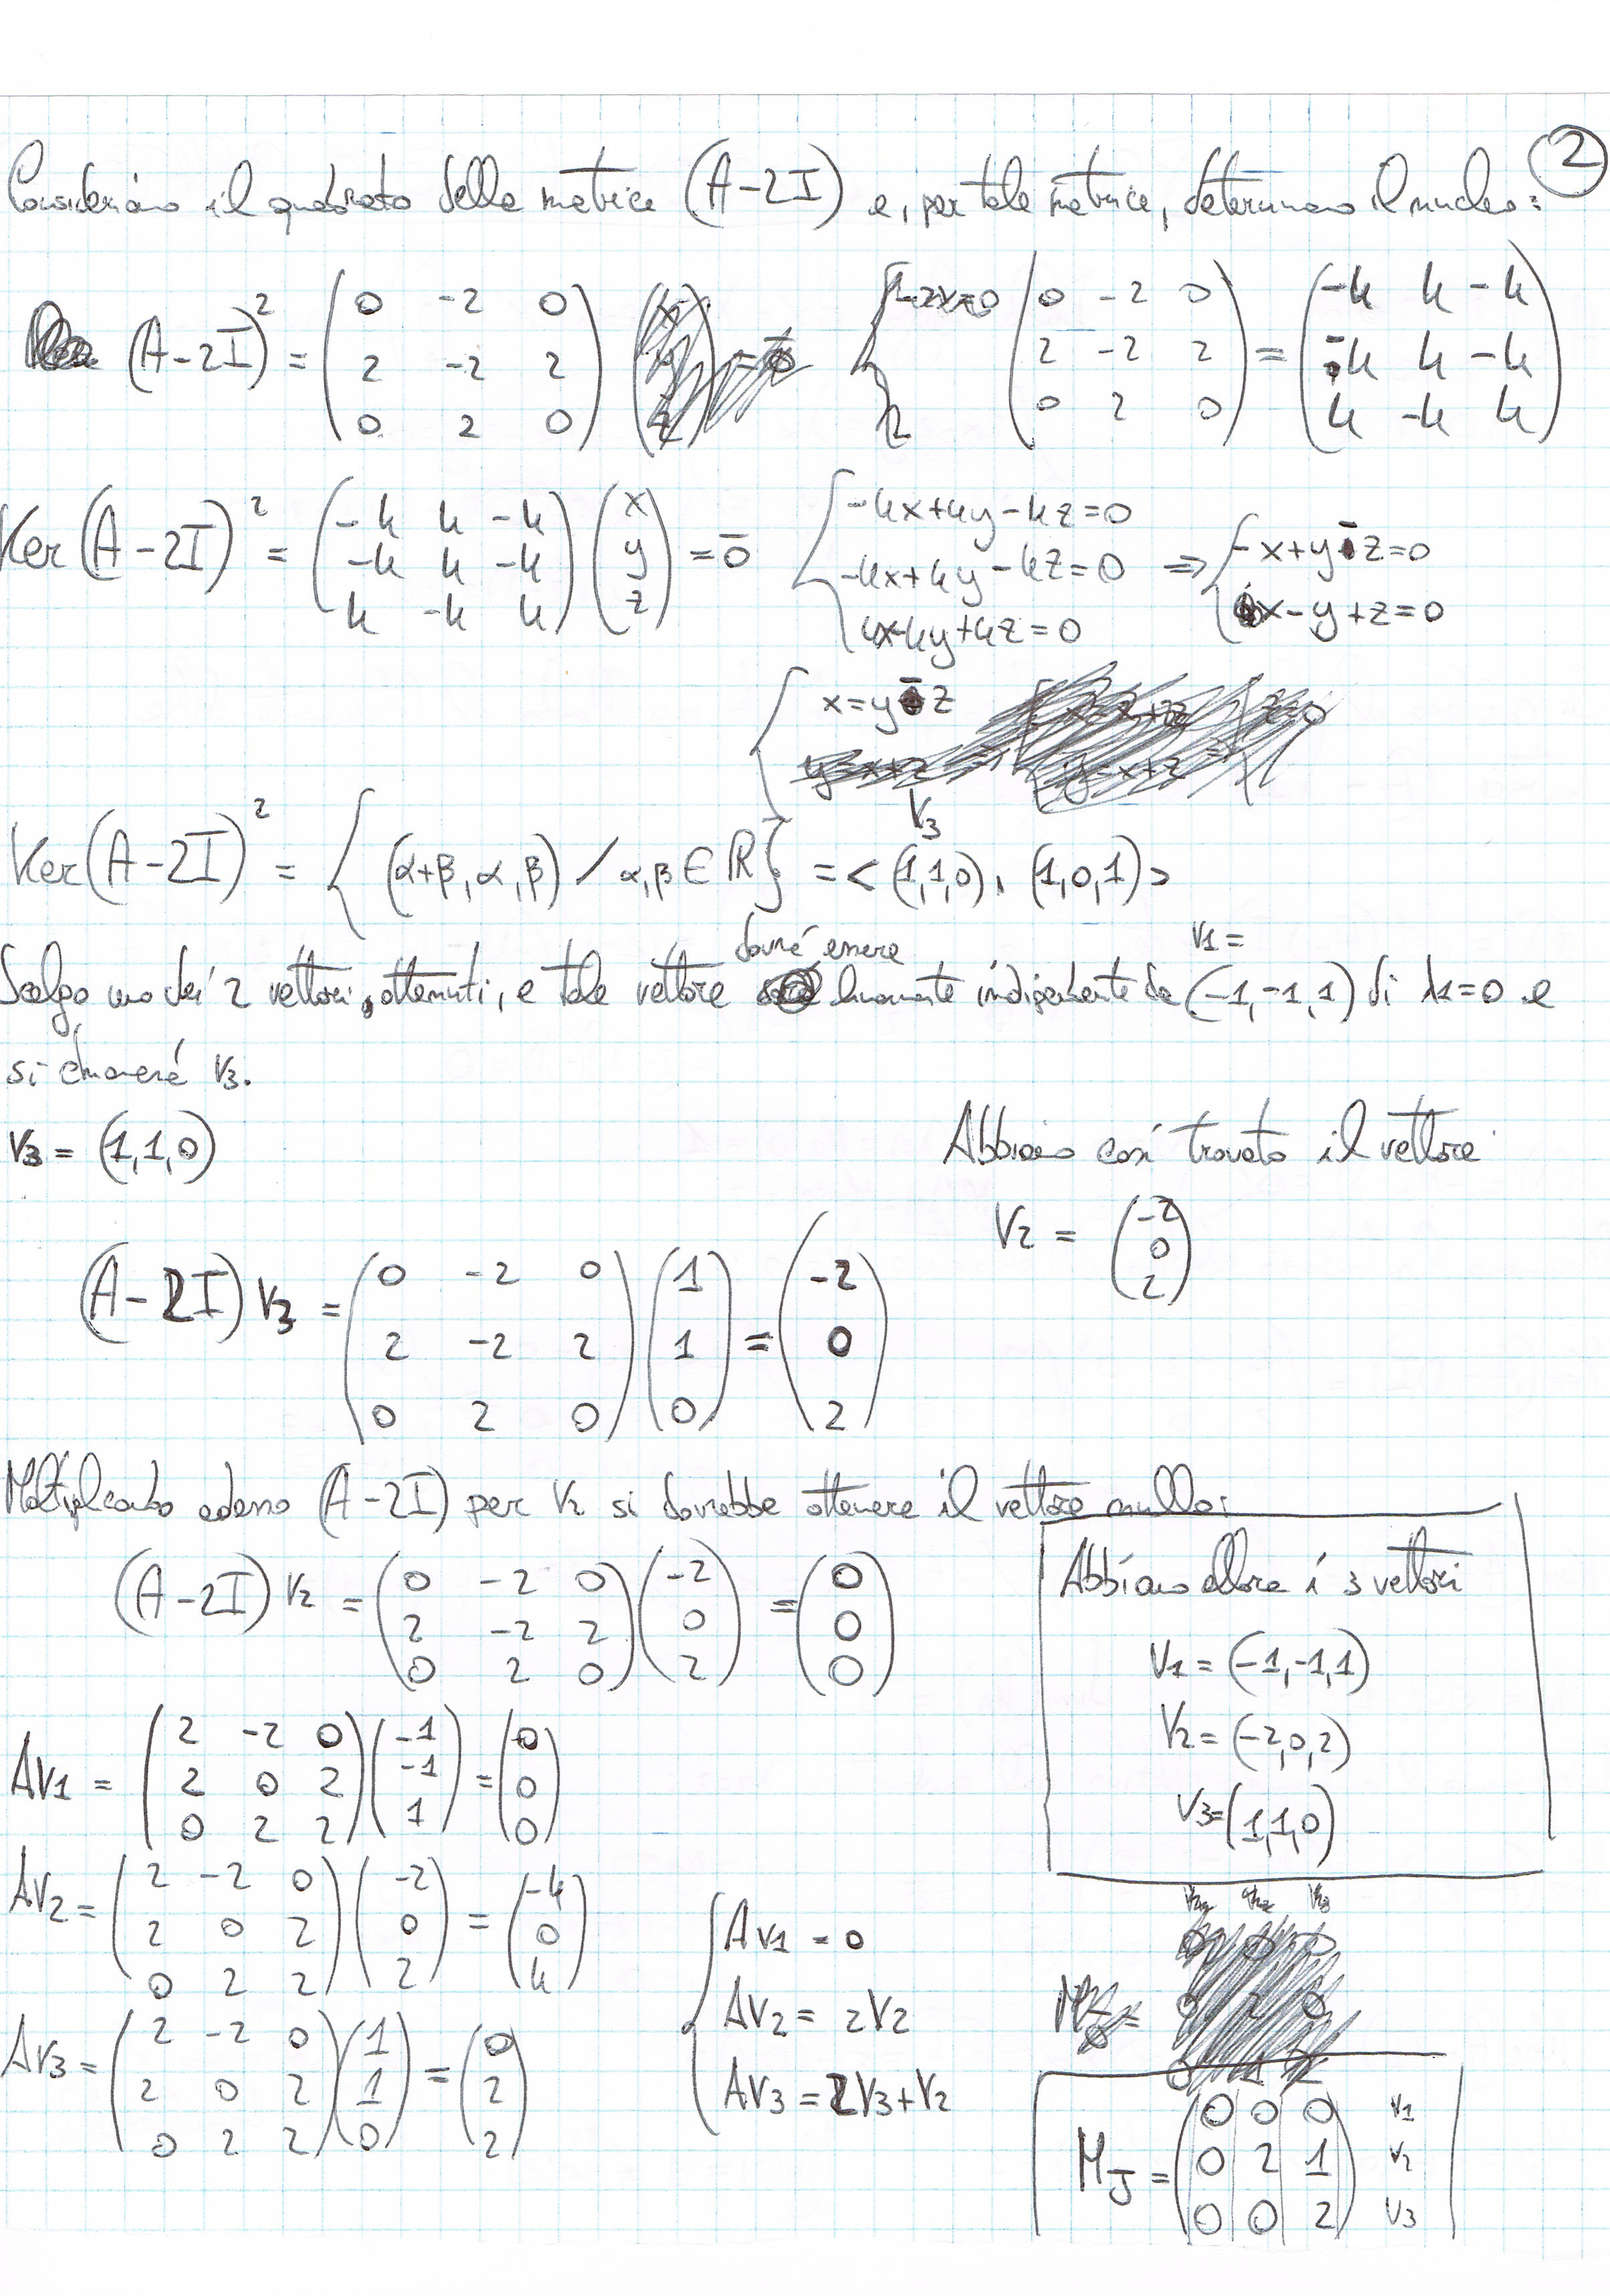 2
Consideriamo il quadrato della matrice (A-2I) e, per tale matrice, determiniamo il nucleo:
(A-2I)² = (0 -2 0; 2 -2 2; 0 2 0) (0 -2 0; 2 -2 2; 0 2 0) = (-4 4 -4; -4 4 -4; 4 -4 4)
Ker(A-2I)² = (-4 4 -4; -4 4 -4; 4 -4 4) (x; y; z) = 0̄ { -4x+4y-4z=0; -4x+4y-4z=0; 4x-4y+4z=0 ⇒ { -x+y-z=0; x-y+z=0
{ x=y-z
v3
Ker(A-2I)² = { (α+β, α, β) / α,β ∈ ℝ } = <(1,1,0), (1,0,1)>
dovrà essere v1 =
Scelgo uno dei 2 vettori, ottenuti, e tale vettore linearmente indipendente da (-1,-1,1) di λ1=0 e
si chiamerà v3.
v3 = (1,1,0)
Abbiamo così trovato il vettore
v2 = (-2; 0; 2)
(A-2I) v3 = (0 -2 0; 2 -2 2; 0 2 0) (1; 1; 0) = (-2; 0; 2)
Moltiplicando adesso (A-2I) per v2 si dovrebbe ottenere il vettore nullo:
(A-2I) v2 = (0 -2 0; 2 -2 2; 0 2 0) (-2; 0; 2) = (0; 0; 0)
Abbiamo allora i 3 vettori
v1 = (-1,-1,1)
v2 = (-2,0,2)
v3 = (1,1,0)
Av1 = (2 -2 0; 2 0 2; 0 2 2) (-1; -1; 1) = (0; 0; 0)
Av2 = (2 -2 0; 2 0 2; 0 2 2) (-2; 0; 2) = (-4; 0; 4)
Av3 = (2 -2 0; 2 0 2; 0 2 2) (1; 1; 0) = (0; 2; 2)
{ Av1 = 0
Av2 = 2v2
Av3 = 2v3+v2
MJ = (0 0 0; 0 2 1; 0 0 2) v1 v2 v3